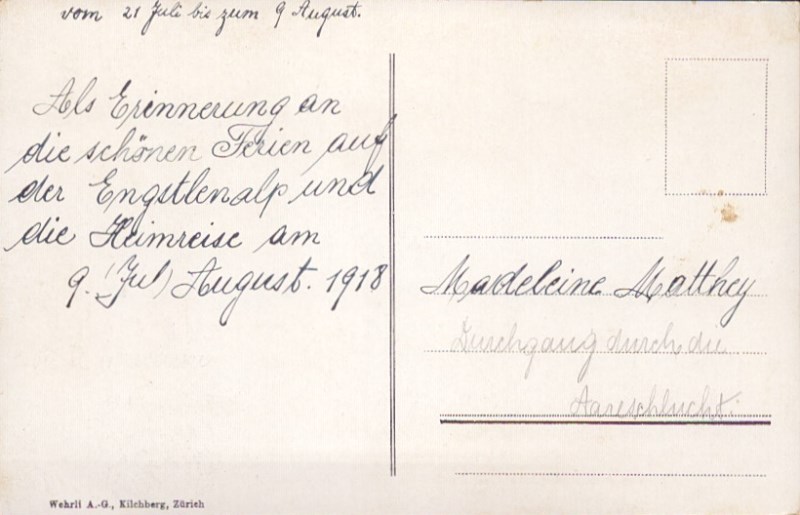 vom 21 Juli bis zum 9 August.
Als Erinnerung an
die schönen Ferien auf
der Engstlenalp und
die Heimreise am
9. (Jul) August. 1918
Madeleine Matthey
Durchgang durch die
Aareschlucht.
Wehrli A.-G., Kilchberg, Zürich